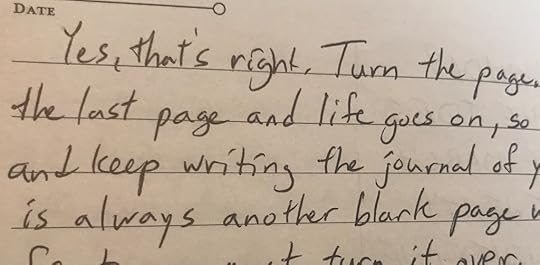 DATE
Yes, that's right. Turn the page.
the last page and life goes on, so
and keep writing the journal of
is always another blank page
turn it over.